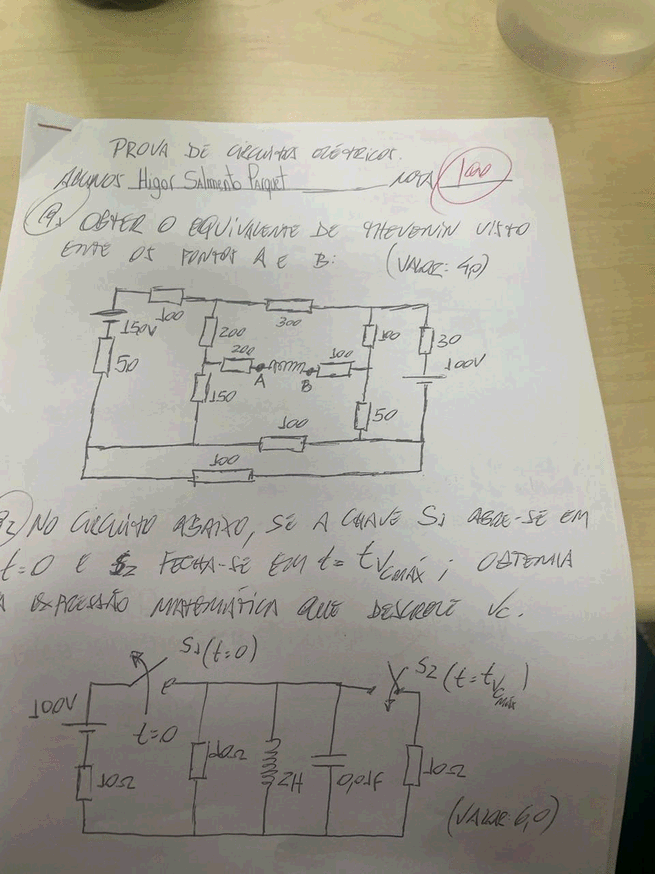 PROVA DE CIRCUITOS ELÉTRICOS.
ALUNOS Higor NOTA 100
1ª) OBTER O EQUIVALENTE DE THEVENIN VISTO
ENTE OS PONTOS A E B: (VALOR: 4p)
100
300
150V
200
100
30
200
100
100V
50
A
B
150
50
100
100
2) NO CIRCUITO ABAIXO, SE A CHAVE S1 ABRE-SE EM
t=0 E S2 FECHA-SE EM t= tVCMÁX; OBTENHA
A EXPRESSÃO MATEMÁTICA QUE DESCREVE VC.
S1 (t=0)
S2 (t=tVCMÁX)
100V
t=0
10Ω
10Ω
2H
0,01F
10Ω
(VALOR: 6,0)